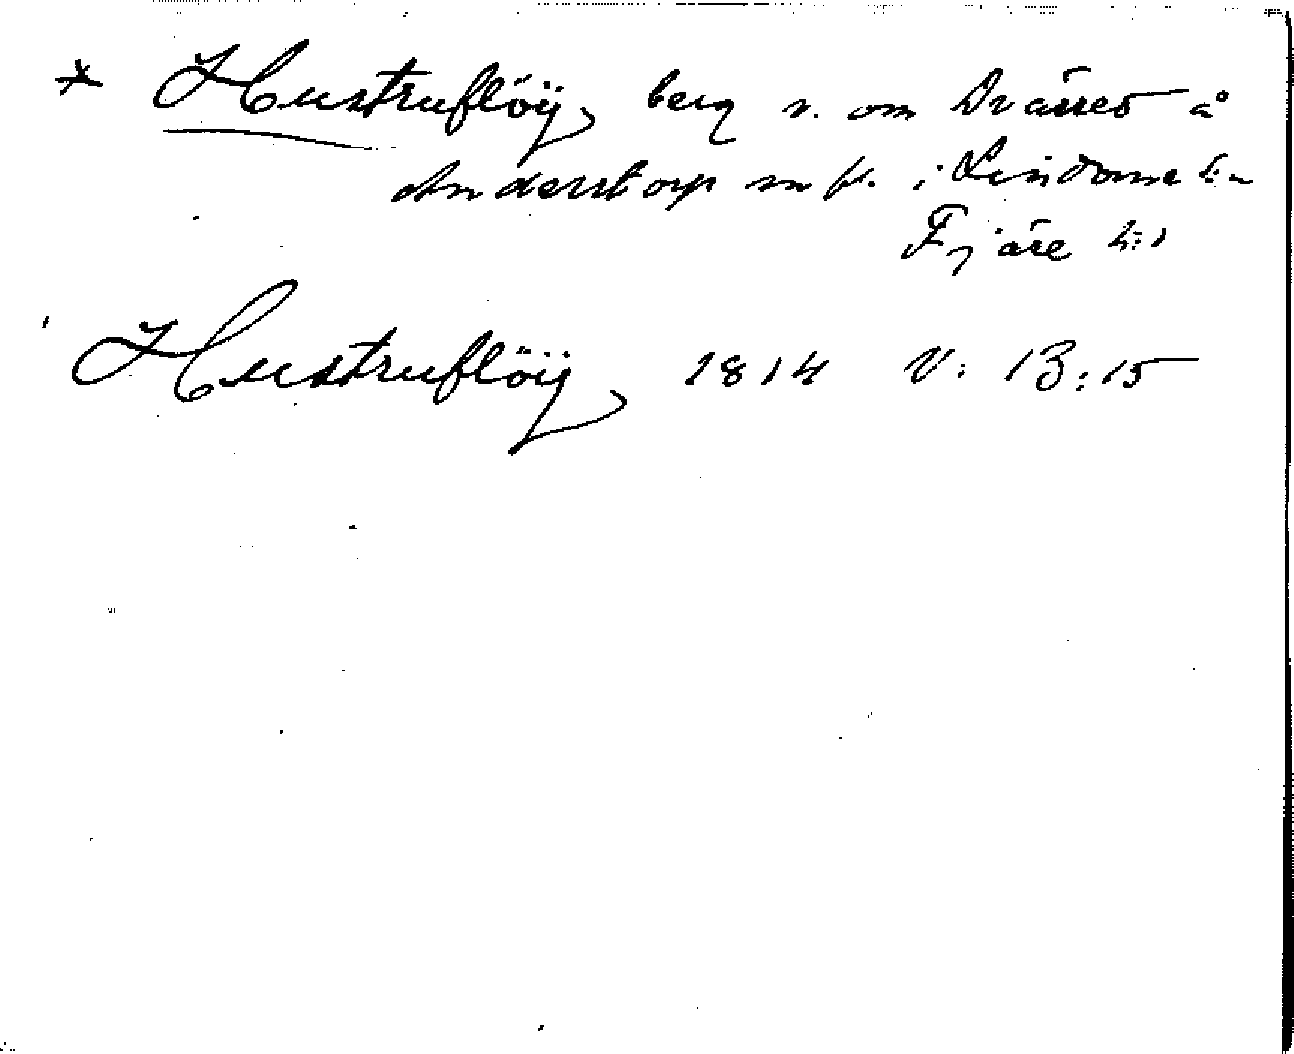 * Hustruflöÿ, berg v. om Dvärred å
Anderstorp m fl. i Lindome s:n
Fjäre h:d
Hustruflöÿ 1814 V: 13:15